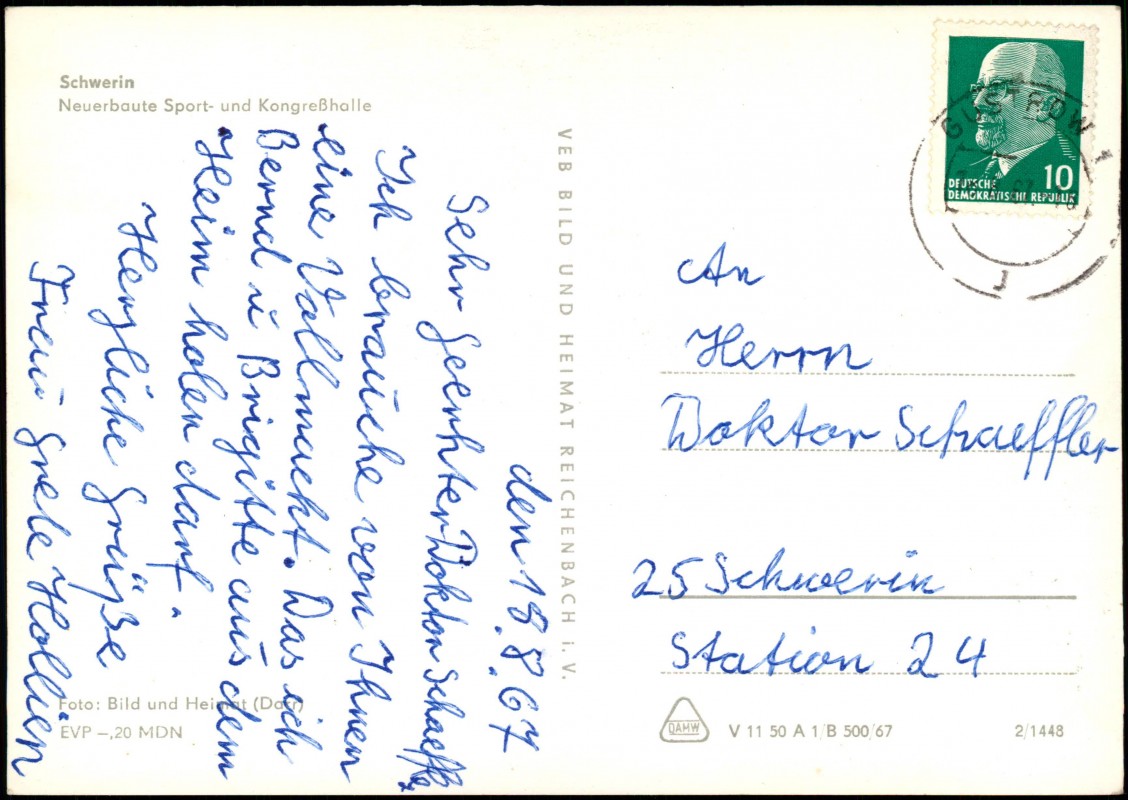 Schwerin
Neuerbaute Sport- und Kongreßhalle
den 18.8.67
Sehr Geenhter Doktor Schaeffler
Ich brauche von Ihnen
eine Vollmacht. Das ich
Bernd u Brigitte aus dem
Heim holen darf.
Herzliche Grüße
Frau Grete Hollien
Foto: Bild und Heimat (Darr)
EVP –,20 MDN
VEB BILD UND HEIMAT REICHENBACH i. V.
GÜSTROW
DEUTSCHE
DEMOKRATISCHE REPUBLIK
10
An
Herrn
Doktor Schaeffler
25 Schwerin
Station 24
DAHW
V 11 50 A 1/B 500/67
2/1448